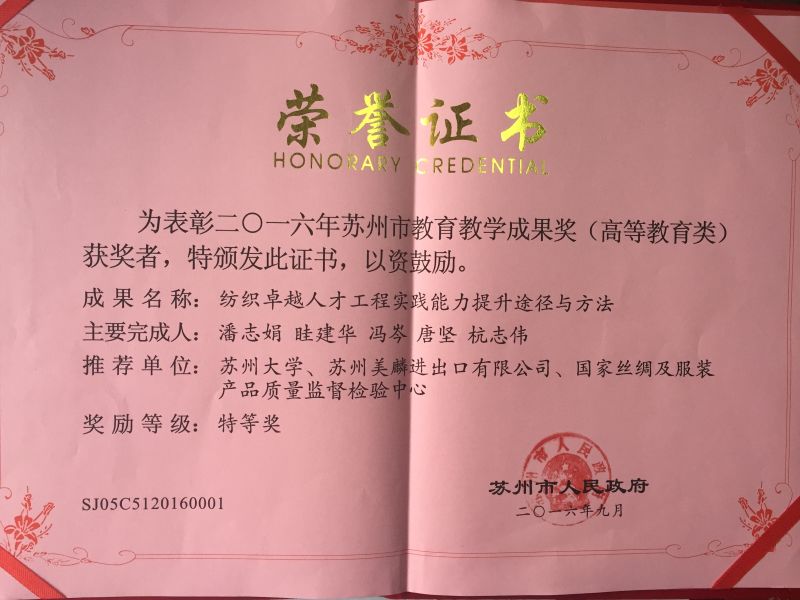 荣誉证书
HONORARY CREDENTIAL
为表彰二〇一六年苏州市教育教学成果奖（高等教育类）
获奖者，特颁发此证书，以资鼓励。
成果名称：纺织卓越人才工程实践能力提升途径与方法
主要完成人：潘志娟 眭建华 冯岑 唐坚 杭志伟
推荐单位：苏州大学、苏州美麟进出口有限公司、国家丝绸及服装
产品质量监督检验中心
奖励等级：特等奖
苏州市人民政府
SJ05C5120160001
二〇一六年九月